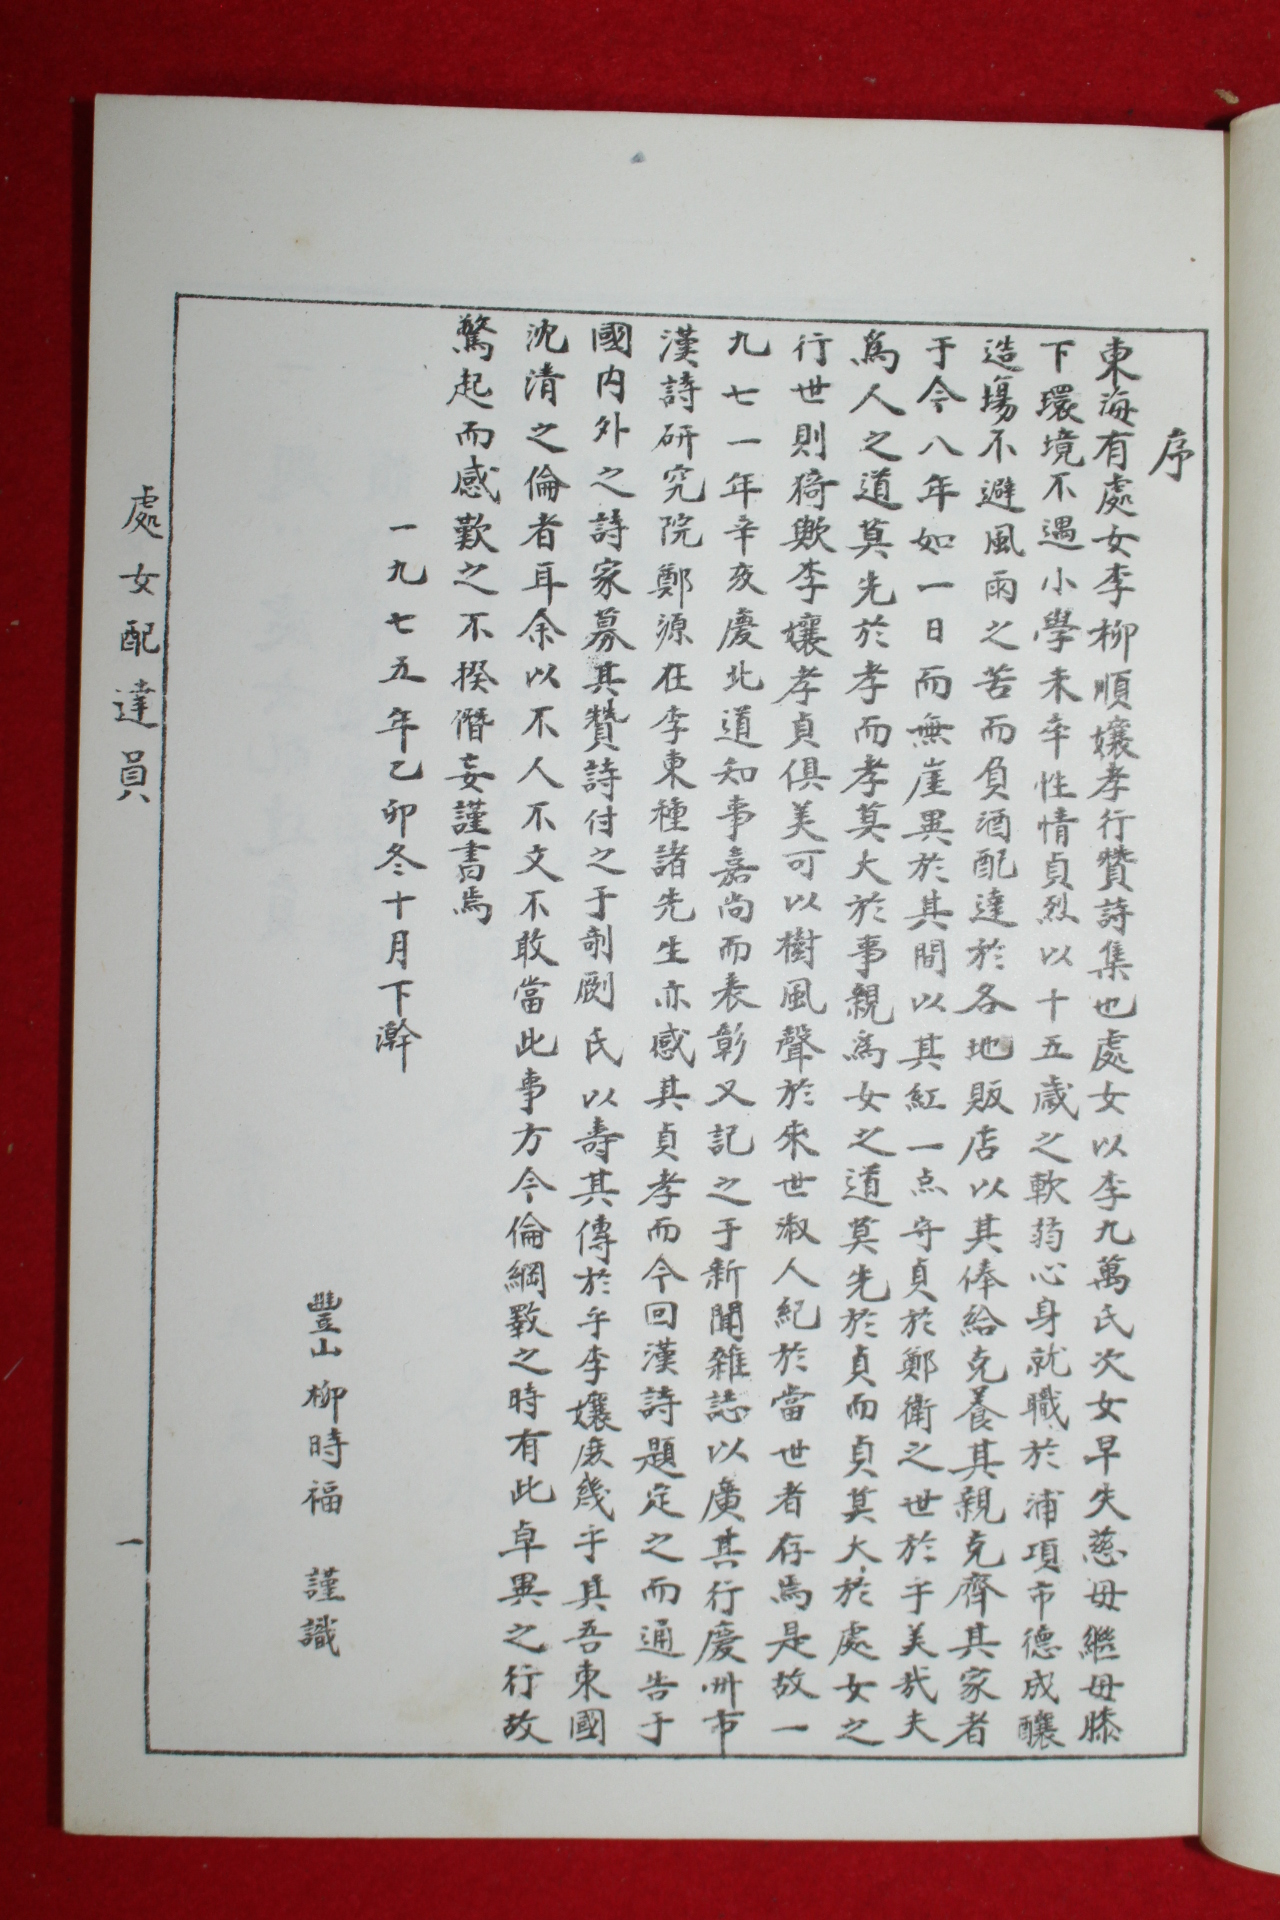 序
東海有處女李柳順孃孝行贊詩集也處女以李九萬氏次女早失慈母繼母膝
下環境不遇小學未卒性情貞烈以十五歲之軟弱心身就職於浦項市德成釀
造場不避風雨之苦而負酒配達於各地販店以其俸給克養其親克齊其家者
于今八年如一日而無崖異於其間以其紅一点守貞於鄭衛之世於乎美哉夫
爲人之道莫先於孝而孝莫大於事親爲女之道莫先於貞而貞莫大於處女之
行世則猗歟李孃孝貞俱美可以樹風聲於來世淑人紀於當世者存焉是故一
九七一年辛亥慶北道知事嘉尚而表彰又記之于新聞雜誌以廣其行慶州市
漢詩硏究院鄭源在李東種諸先生亦感其貞孝而今回漢詩題定之而通告于
國內外之詩家募其贊詩付之于剞劂氏以壽其傳於乎李孃庶幾乎眞吾東國
沈清之倫者耳余以不人不文不敢當此事方今倫綱斁之時有此卓異之行故
驚起而感歎之不揆僭妄謹書焉
一九七五年乙卯冬十月下澣
豐山柳時福 謹識
處女配達員
一